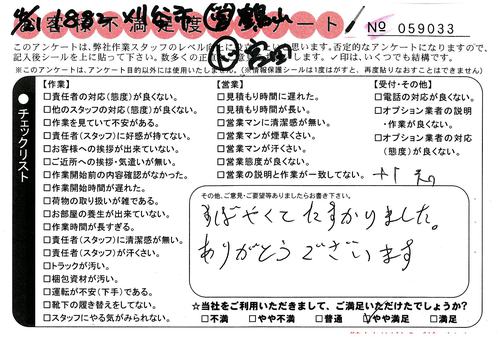 1882 刈谷市
お客様不満足度アンケート
№ 059033
このアンケートは、弊社作業スタッフのレベル向上に
思います。否定的なアンケートになりますので、
記入後シールを上に貼って下さい。
✓印は、いくつでも結構です。
※このアンケートは、アンケート目的以外には使用いたしません。(※情報保護シールは1度はがすと、再度貼りなおすことはできません)
●チェックリスト
【作業】
□責任者の対応(態度)が良くない。
□他のスタッフの対応(態度)が良くない。
□作業を見ていて不安がある。
□責任者(スタッフ)に好感が持てない。
□お客様への挨拶が出来ていない。
□ご近所への挨拶・気遣いが無い。
□作業開始前の内容確認がなかった。
□作業開始時間が遅れた。
□荷物の取り扱いが雑である。
□お部屋の養生が出来ていない。
□作業時間が長すぎる。
□責任者(スタッフ)に清潔感が無い。
□責任者(スタッフ)が汗くさい。
□トラックが汚い。
□梱包資材が汚い。
□運転が不安(下手)である。
□靴下の履き替えをしてない。
□スタッフにやる気がみられない。
【営業】
□見積もり時間に遅れた。
□見積もり時間が長い。
□営業マンに清潔感が無い。
□営業マンが煙草くさい。
□営業マンが汗くさい。
□営業態度が良くない。
□営業の説明と作業が一致してない。
【受付・その他】
□電話の対応が良くない。
□オプション業者の説明
・作業が良くない。
□オプション業者の対応
(態度)が良くない。
その他、ご意見・ご要望等ありましたらお書き下さい。
すばやくてたすかりました。
ありがとうございます
☆当社をご利用いただきまして、ご満足いただけたでしょうか?
□不満 □やや不満 □普通 ☑やや満足 □満足